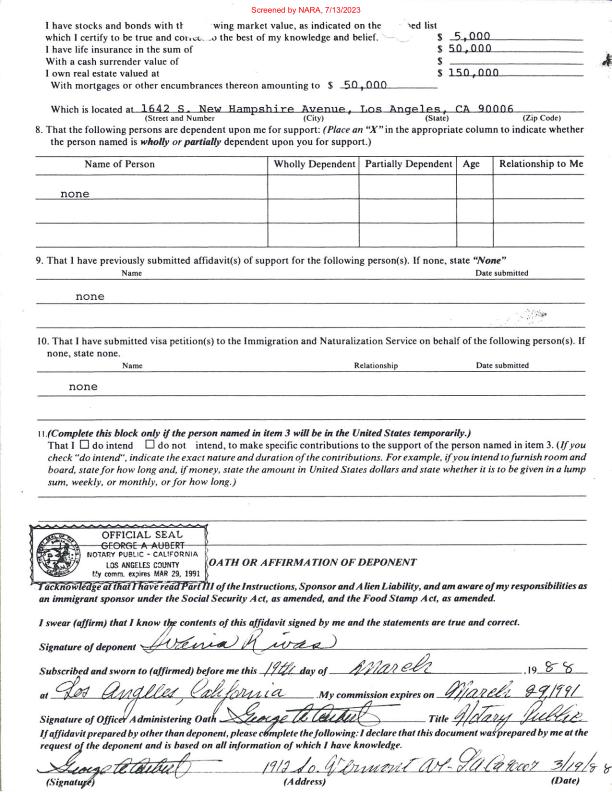 Screened by NARA, 7/13/2023
I have stocks and bonds with th wing market value, as indicated on the ed list
which I certify to be true and correc to the best of my knowledge and belief. $ 5,000
I have life insurance in the sum of $ 50,000
With a cash surrender value of $
I own real estate valued at $ 150,000
With mortgages or other encumbrances thereon amounting to $ 50,000
Which is located at 1642 S. New Hampshire Avenue, Los Angeles, CA 90006
(Street and Number) (City) (State) (Zip Code)
8. That the following persons are dependent upon me for support: (Place an "X" in the appropriate column to indicate whether
the person named is wholly or partially dependent upon you for support.)
Name of Person Wholly Dependent Partially Dependent Age Relationship to Me
none
9. That I have previously submitted affidavit(s) of support for the following person(s). If none, state "None"
Name Date submitted
none
10. That I have submitted visa petition(s) to the Immigration and Naturalization Service on behalf of the following person(s). If
none, state none.
Name Relationship Date submitted
none
11. (Complete this block only if the person named in item 3 will be in the United States temporarily.)
That I ☐ do intend ☐ do not intend, to make specific contributions to the support of the person named in item 3. (If you
check "do intend", indicate the exact nature and duration of the contributions. For example, if you intend to furnish room and
board, state for how long and, if money, state the amount in United States dollars and state whether it is to be given in a lump
sum, weekly, or monthly, or for how long.)
OFFICIAL SEAL
GEORGE A AUBERT
NOTARY PUBLIC - CALIFORNIA
LOS ANGELES COUNTY
My comm. expires MAR 29, 1991
OATH OR AFFIRMATION OF DEPONENT
I acknowledge at that I have read Part III of the Instructions, Sponsor and Alien Liability, and am aware of my responsibilities as
an immigrant sponsor under the Social Security Act, as amended, and the Food Stamp Act, as amended.
I swear (affirm) that I know the contents of this affidavit signed by me and the statements are true and correct.
Signature of deponent Rivas
Subscribed and sworn to (affirmed) before me this 19th day of March , 19 88
at Los Angeles, California My commission expires on March 29 1991
Signature of Officer Administering Oath George A Aubert Title Notary Public
If affidavit prepared by other than deponent, please complete the following: I declare that this document was prepared by me at the
request of the deponent and is based on all information of which I have knowledge.
George A Aubert 1912 So. Vermont Av- 3/19/88
(Signature) (Address) (Date)